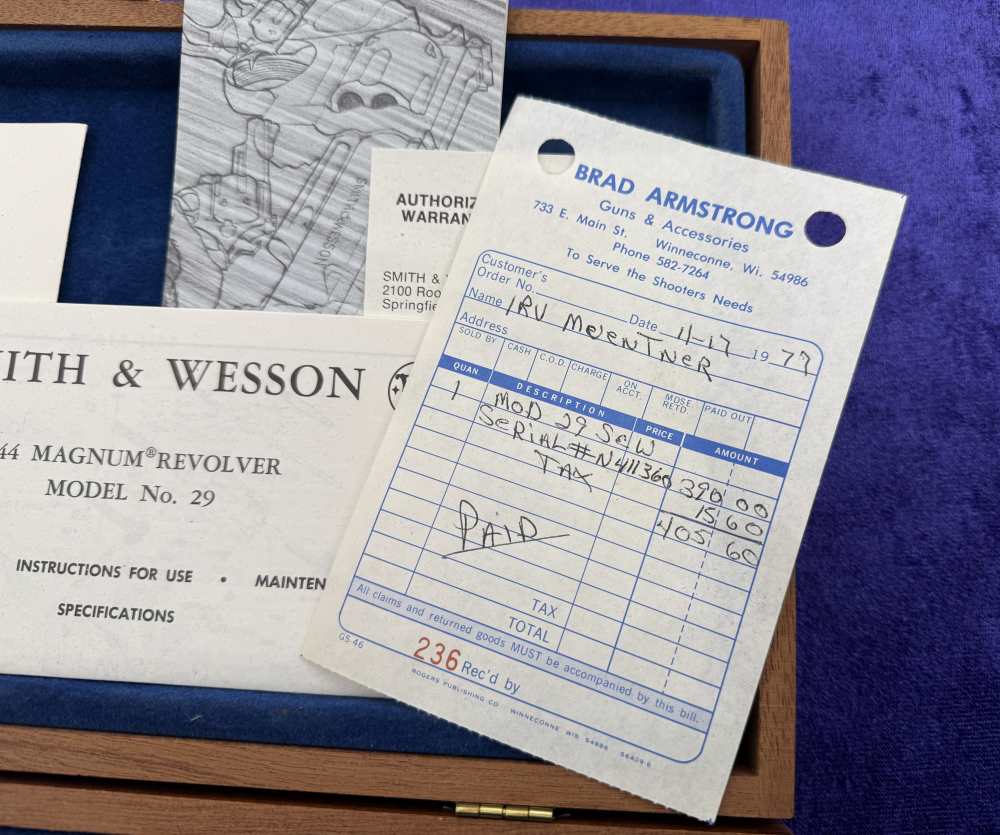 AUTHORIZ
WARRAN
SMITH &
2100 Roo
Springfie
ITH & WESSON
44 MAGNUM® REVOLVER
MODEL No. 29
INSTRUCTIONS FOR USE • MAINTEN
SPECIFICATIONS
BRAD ARMSTRONG
Guns & Accessories
733 E. Main St. Winneconne, Wi. 54986
Phone 582-7264
To Serve the Shooters Needs
Customer's
Order No. Date 11-17 19 77
Name IRV MEUENTNER
Address
SOLD BY CASH C.O.D. CHARGE ON ACCT. MDSE. RETD. PAID OUT
QUAN. DESCRIPTION PRICE AMOUNT
1 MOD 29 S&W
SERIAL # N411360 390 00
TAX 15 60
405 60
PAID
TAX
TOTAL
All claims and returned goods MUST be accompanied by this bill.
GS-46
236 Rec'd by
ROGERS PUBLISHING CO. WINNECONNE, WIS. 54986